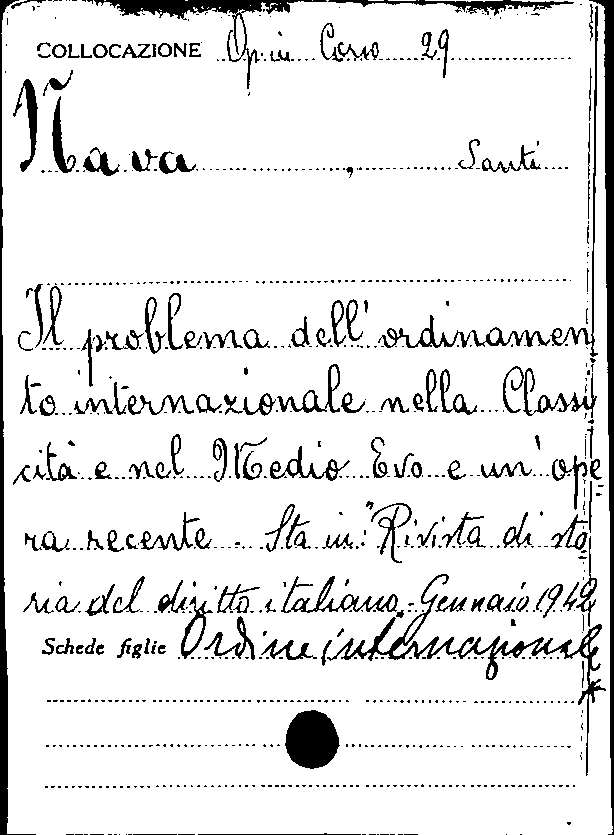 COLLOCAZIONE Op. in Corso 29
Nava, Santi
Il problema dell'ordinamen
to internazionale nella Classi
cità e nel Medio Evo e un'ope
ra recente - Sta in: "Rivista di sto
ria del diritto italiano - Gennaio 1942
Schede figlie Ordine internazionale
*